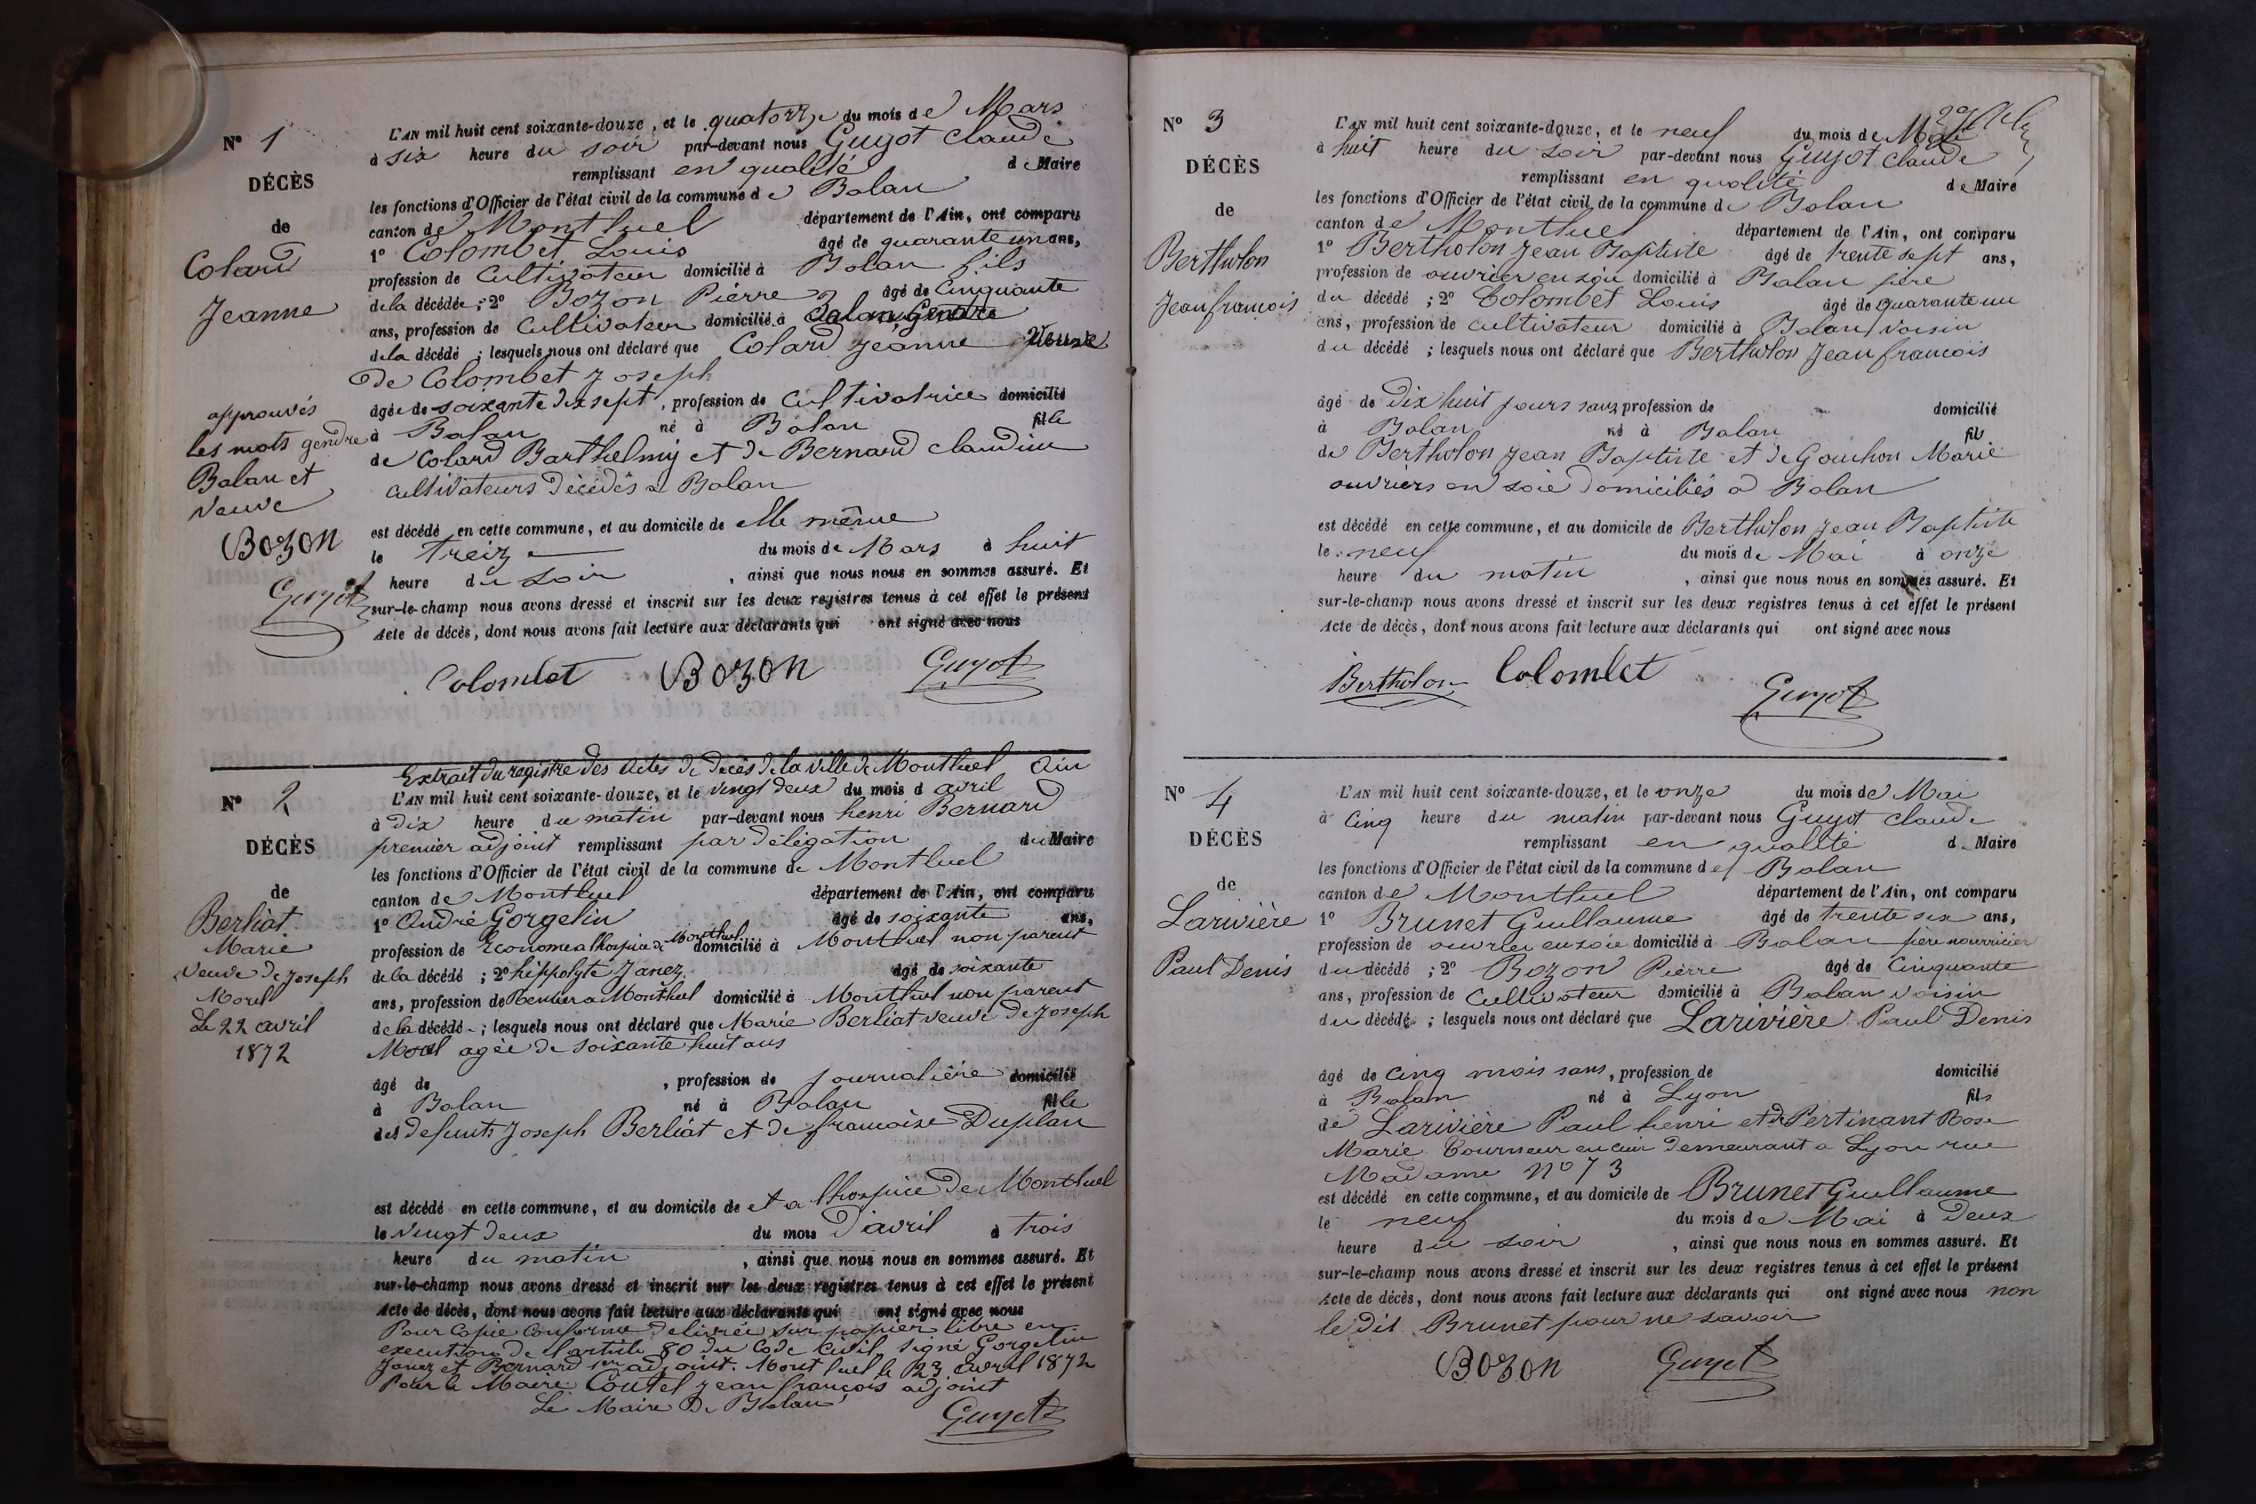 N° 1
DÉCÈS
de
Colard
Jeanne
approuvés
les mots gendre
Balan et
veuve
Bozon
Guyot
L'AN mil huit cent soixante-douze, et le quatorze du mois de Mars
à six heure du soir par-devant nous Guyot Claude
remplissant en qualité de Maire
les fonctions d'Officier de l'état civil de la commune de Balan
canton de Montluel département de l'Ain, ont comparu
1° Colombet Louis âgé de quarante un ans,
profession de Cultivateur domicilié à Balan fils
de la décédée ; 2° Bozon Pierre âgé de Cinquante
ans, profession de Cultivateur domicilié à Balan, Gendre
de la décédé ; lesquels nous ont déclaré que Colard Jeanne Veuve
de Colombet Joseph
âgée de soixante dix sept, profession de Cultivatrice domicilié
à Balan né à Balan fille
de Colard Barthelmy et de Bernard Claudine
cultivateurs décédés à Balan
est décédé en cette commune, et au domicile de elle même
le treize du mois de Mars à huit
heure du soir, ainsi que nous nous en sommes assuré. Et
sur-le-champ nous avons dressé et inscrit sur les deux registres tenus à cet effet le présent
Acte de décès, dont nous avons fait lecture aux déclarants qui ont signé avec nous
Colombet Bozon Guyot
Extrait du registre des Actes de décès de la ville de Montluel Ain
N° 2
DÉCÈS
de
Berliat
Marie
veuve de Joseph
Morel
Le 22 avril
1872
L'AN mil huit cent soixante-douze, et le vingt deux du mois d avril
à dix heure du matin par-devant nous henri Bernard
premier adjoint remplissant par délégation du Maire
les fonctions d'Officier de l'état civil de la commune de Montluel
canton de Montluel département de l'Ain, ont comparu
1° André Gorgelin âgé de soixante ans,
profession de Econome a lhospice de Montluel domicilié à Montluel non parent
de la décédé ; 2° hippolyte Janez âgé de soixante
ans, profession de Rentier a Montluel domicilié à Montluel non parent
de la décédé ; lesquels nous ont déclaré que Marie Berliat veuve de Joseph
Morel agée de soixante huit ans
âgé de , profession de Journalière domicilié
à Balan né à Balan fille
des defunts Joseph Berliat et de francoise Duplan
est décédé en cette commune, et au domicile de et a lhospice de Montluel
le vingt deux du mois d'avril à trois
heure du matin, ainsi que nous nous en sommes assuré. Et
sur-le-champ nous avons dressé et inscrit sur les deux registres tenus à cet effet le présent
Acte de décès, dont nous avons fait lecture aux déclarants qui ont signé avec nous
Pour copie conforme délivrée sur papier libre en
execution de l'article 80 du Code Civil signé Gorgelin
Janez et Bernard 1er adjoint. Montluel le 23 avril 1872
Pour le Maire Coutel Jean françois adjoint
Le Maire de Balan
Guyot
N° 3
DÉCÈS
de
Bertholon
Jean francois
L'AN mil huit cent soixante-douze, et le neuf du mois de Mai
à huit heure du soir par-devant nous Guyot Claude
remplissant en qualité de Maire
les fonctions d'Officier de l'état civil de la commune de Balan
canton de Montluel département de l'Ain, ont comparu
1° Bertholon Jean Baptiste âgé de trente sept ans,
profession de ouvrier en soie domicilié à Balan père
du décédé ; 2° Colombet Louis âgé de quarante un
ans, profession de cultivateur domicilié à Balan voisin
du décédé ; lesquels nous ont déclaré que Bertholon Jean francois
âgé de dix huit jours sans profession de domicilié
à Balan né à Balan fils
de Bertholon Jean Baptiste et de Gouchon Marie
ouvriers en soie domiciliés à Balan
est décédé en cette commune, et au domicile de Bertholon Jean Baptiste
le neuf du mois de Mai à onze
heure du matin, ainsi que nous nous en sommes assuré. Et
sur-le-champ nous avons dressé et inscrit sur les deux registres tenus à cet effet le présent
Acte de décès, dont nous avons fait lecture aux déclarants qui ont signé avec nous
Bertholon Colombet Guyot
N° 4
DÉCÈS
de
Larivière
Paul Denis
L'AN mil huit cent soixante-douze, et le onze du mois de Mai
à cinq heure du matin par-devant nous Guyot Claude
remplissant en qualité de Maire
les fonctions d'Officier de l'état civil de la commune de Balan
canton de Montluel département de l'Ain, ont comparu
1° Brunet Guillaume âgé de trente six ans,
profession de ouvrier en soie domicilié à Balan père nourricier
du décédé ; 2° Bozon Pierre âgé de Cinquante
ans, profession de Cultivateur domicilié à Balan voisin
du décédé ; lesquels nous ont déclaré que Larivière Paul Denis
âgé de cinq mois sans, profession de domicilié
à Balan né à Lyon fils
de Larivière Paul henri et de Pertinant Rose
Marie Tourneur en cuir demeurant a Lyon rue
Madame n° 73
est décédé en cette commune, et au domicile de Brunet Guillaume
le neuf du mois de Mai à Deux
heure du soir, ainsi que nous nous en sommes assuré. Et
sur-le-champ nous avons dressé et inscrit sur les deux registres tenus à cet effet le présent
Acte de décès, dont nous avons fait lecture aux déclarants qui ont signé avec nous non
le dit Brunet pour ne savoir
Bozon Guyot